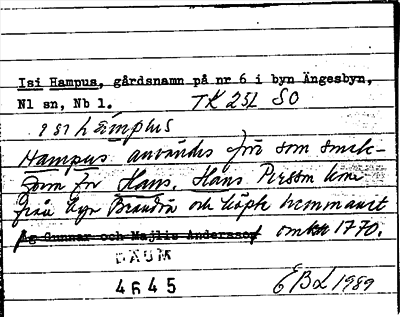 Isi Hampus, gårdsnamn på nr 6 i byn Ängesbyn,
Nl sn, Nb l. TK 25L SO
Hampus användes förr som smek-
form för Hans. Hans Persson kom
från byn Brändön och köpte hemmanet
Ag Gunnar och Majlis Andersson omkr 1770.
DAUM
4645 EBL 1989